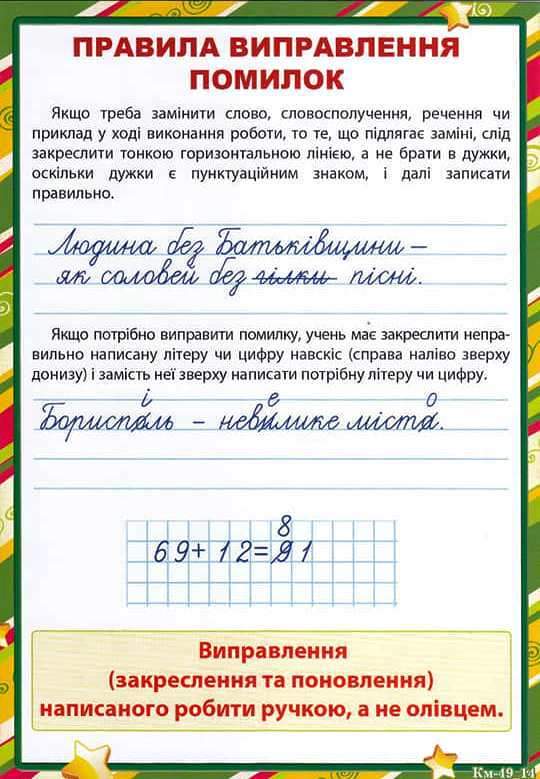 ПРАВИЛА ВИПРАВЛЕННЯ
ПОМИЛОК
Якщо треба замінити слово, словосполучення, речення чи
приклад у ході виконання роботи, то те, що підлягає заміні, слід
закреслити тонкою горизонтальною лінією, а не брати в дужки,
оскільки дужки є пунктуаційним знаком, і далі записати
правильно.
Людина без Батьківщини –
як соловей без гілки пісні.
Якщо потрібно виправити помилку, учень має закреслити непра-
вильно написану літеру чи цифру навскіс (справа наліво зверху
донизу) і замість неї зверху написати потрібну літеру чи цифру.
і е о
Бориспаль – невилике міста.
8
69+12=91
Виправлення
(закреслення та поновлення)
написаного робити ручкою, а не олівцем.
Км-49 14